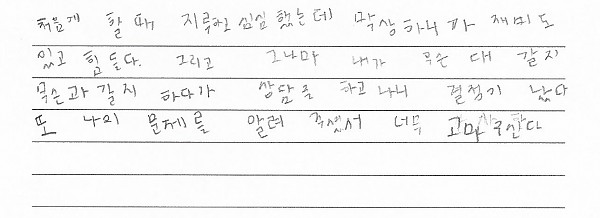 처음게 할 때 지루하고 심심 했는데 막상 하니까 재미도
있고 힘들다. 그리고 그나마 내가 무슨 대 갈지
무슨과 갈지 하다가 상담을 하고 나니 결정기 났다
또 나의 문제를 알려 주셔서 너무